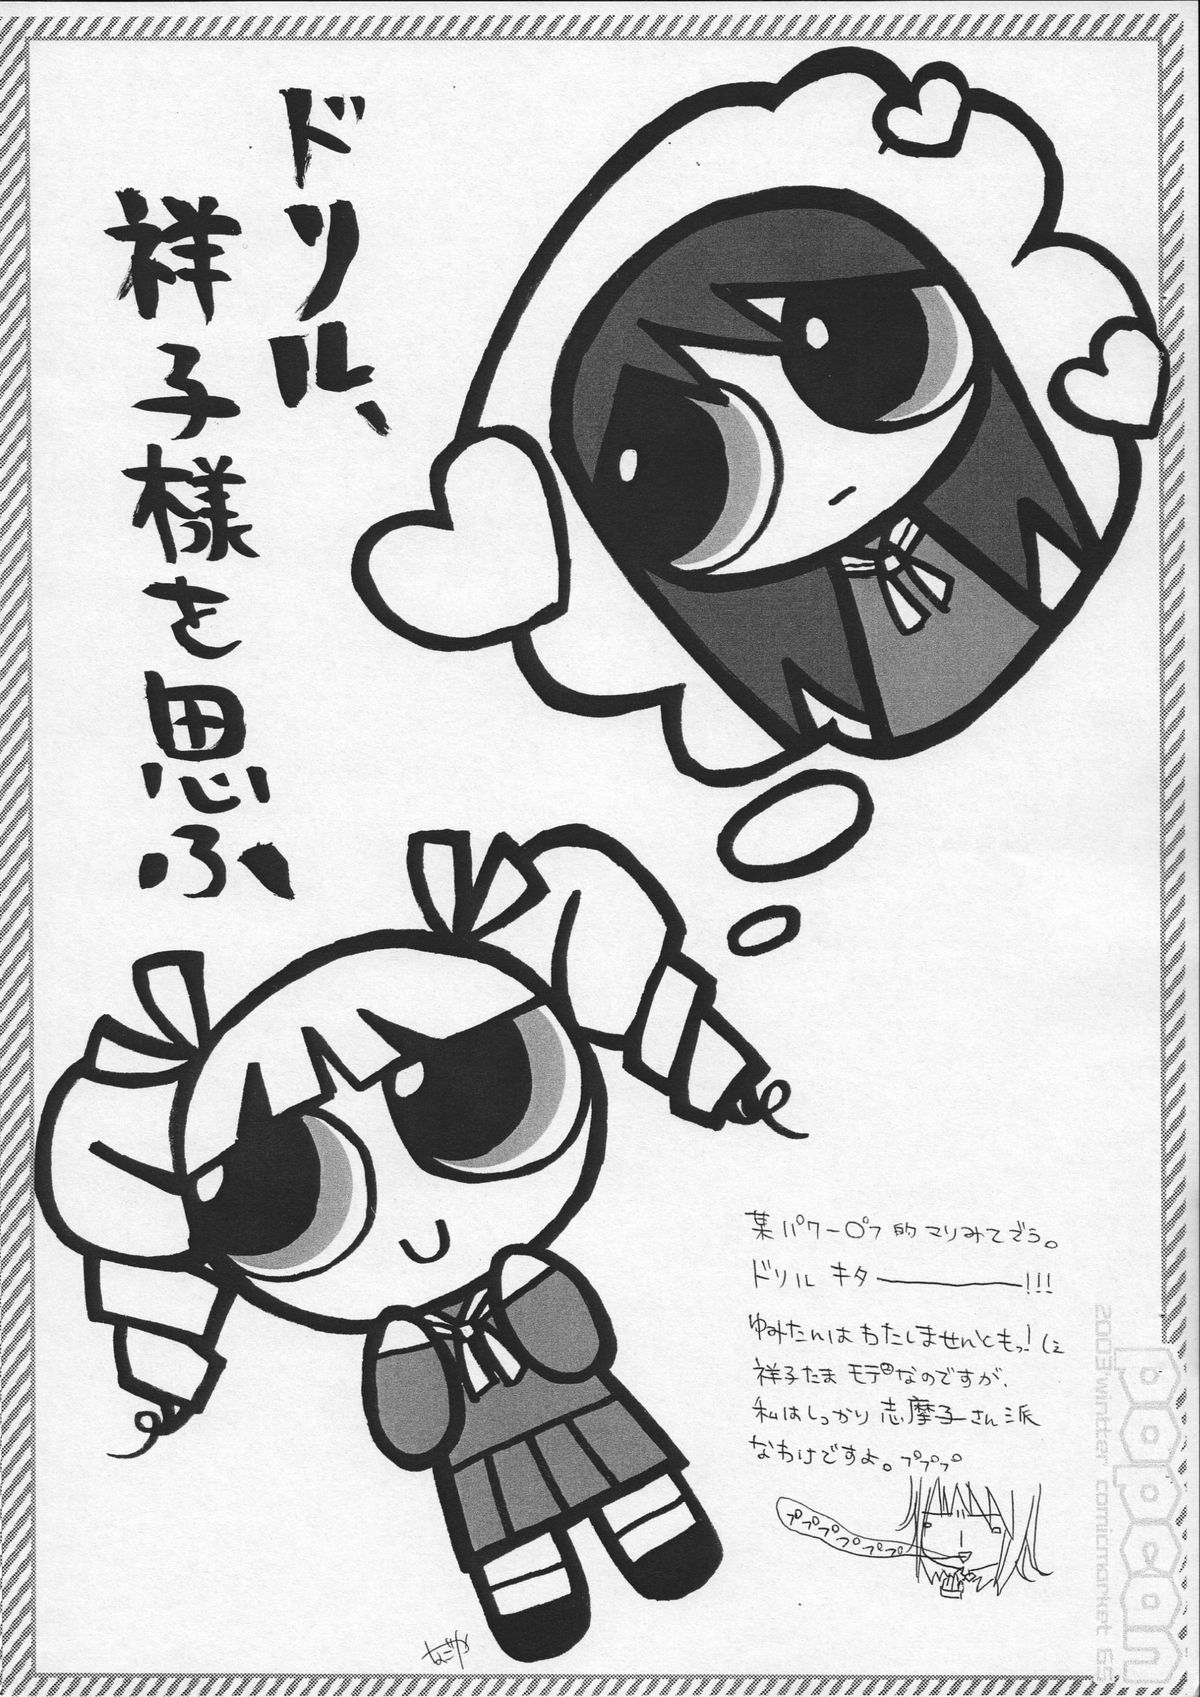 ドリル、
祥子様を思ふ
某パワーパフ的マリみてでう。
ドリル キター――――!!!
ゆみたんはわたしませんともっ!
祥子たまモテなのですが、
私はしっかり志摩子さん派
なわけですよ。ププププ
プププププププ
popcan
2003 winter comicmarket 65